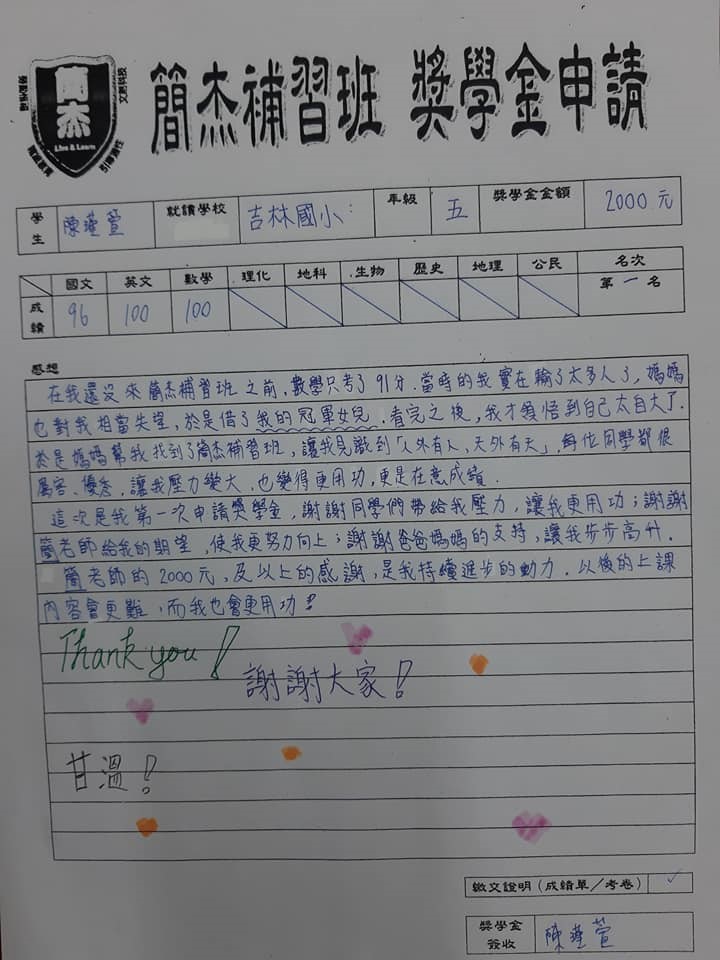 簡杰
Live & Learn
簡杰補習班 獎學金申請
學生 陳薏萱 就讀學校 吉林國小 年級 五 獎學金金額 2000元
國文 英文 數學 理化 地科 生物 歷史 地理 公民 名次
成績 96 100 100 第一名
感想
在我還沒來簡杰補習班之前,數學只考了91分.當時的我實在輸了太多人了,媽媽
也對我相當失望,於是借了我的冠軍女兒.看完之後,我才領悟到自己太自大了.
於是媽媽幫我找到了簡杰補習班,讓我見識到「人外有人,天外有天」,每位同學都很
厲害、優秀,讓我壓力變大,也變得更用功,更是在意成績.
這次是我第一次申請獎學金,謝謝同學們帶給我壓力,讓我更用功;謝謝
簡老師給我的期望,使我更努力向上;謝謝爸爸媽媽的支持,讓我步步高升.
簡老師的2000元,及以上的感謝,是我持續進步的動力.以後的上課
內容會更難,而我也會更用功!
Thank you!
謝謝大家!
甘溫!
繳交證明(成績單/考卷) ✓
獎學金簽收 陳薏萱